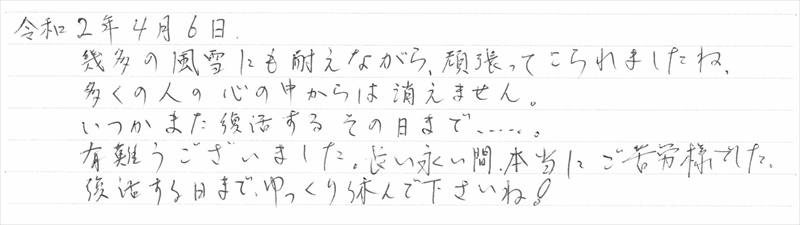 令和2年4月6日.
幾多の風雪にも耐えながら、頑張ってこられましたね、
多くの人の心の中からは消えません。
いつかまた復活するその日まで……。
有難うございました。長い永い間、本当にご苦労様でした、
復活する日まで、ゆっくり休んで下さいね!